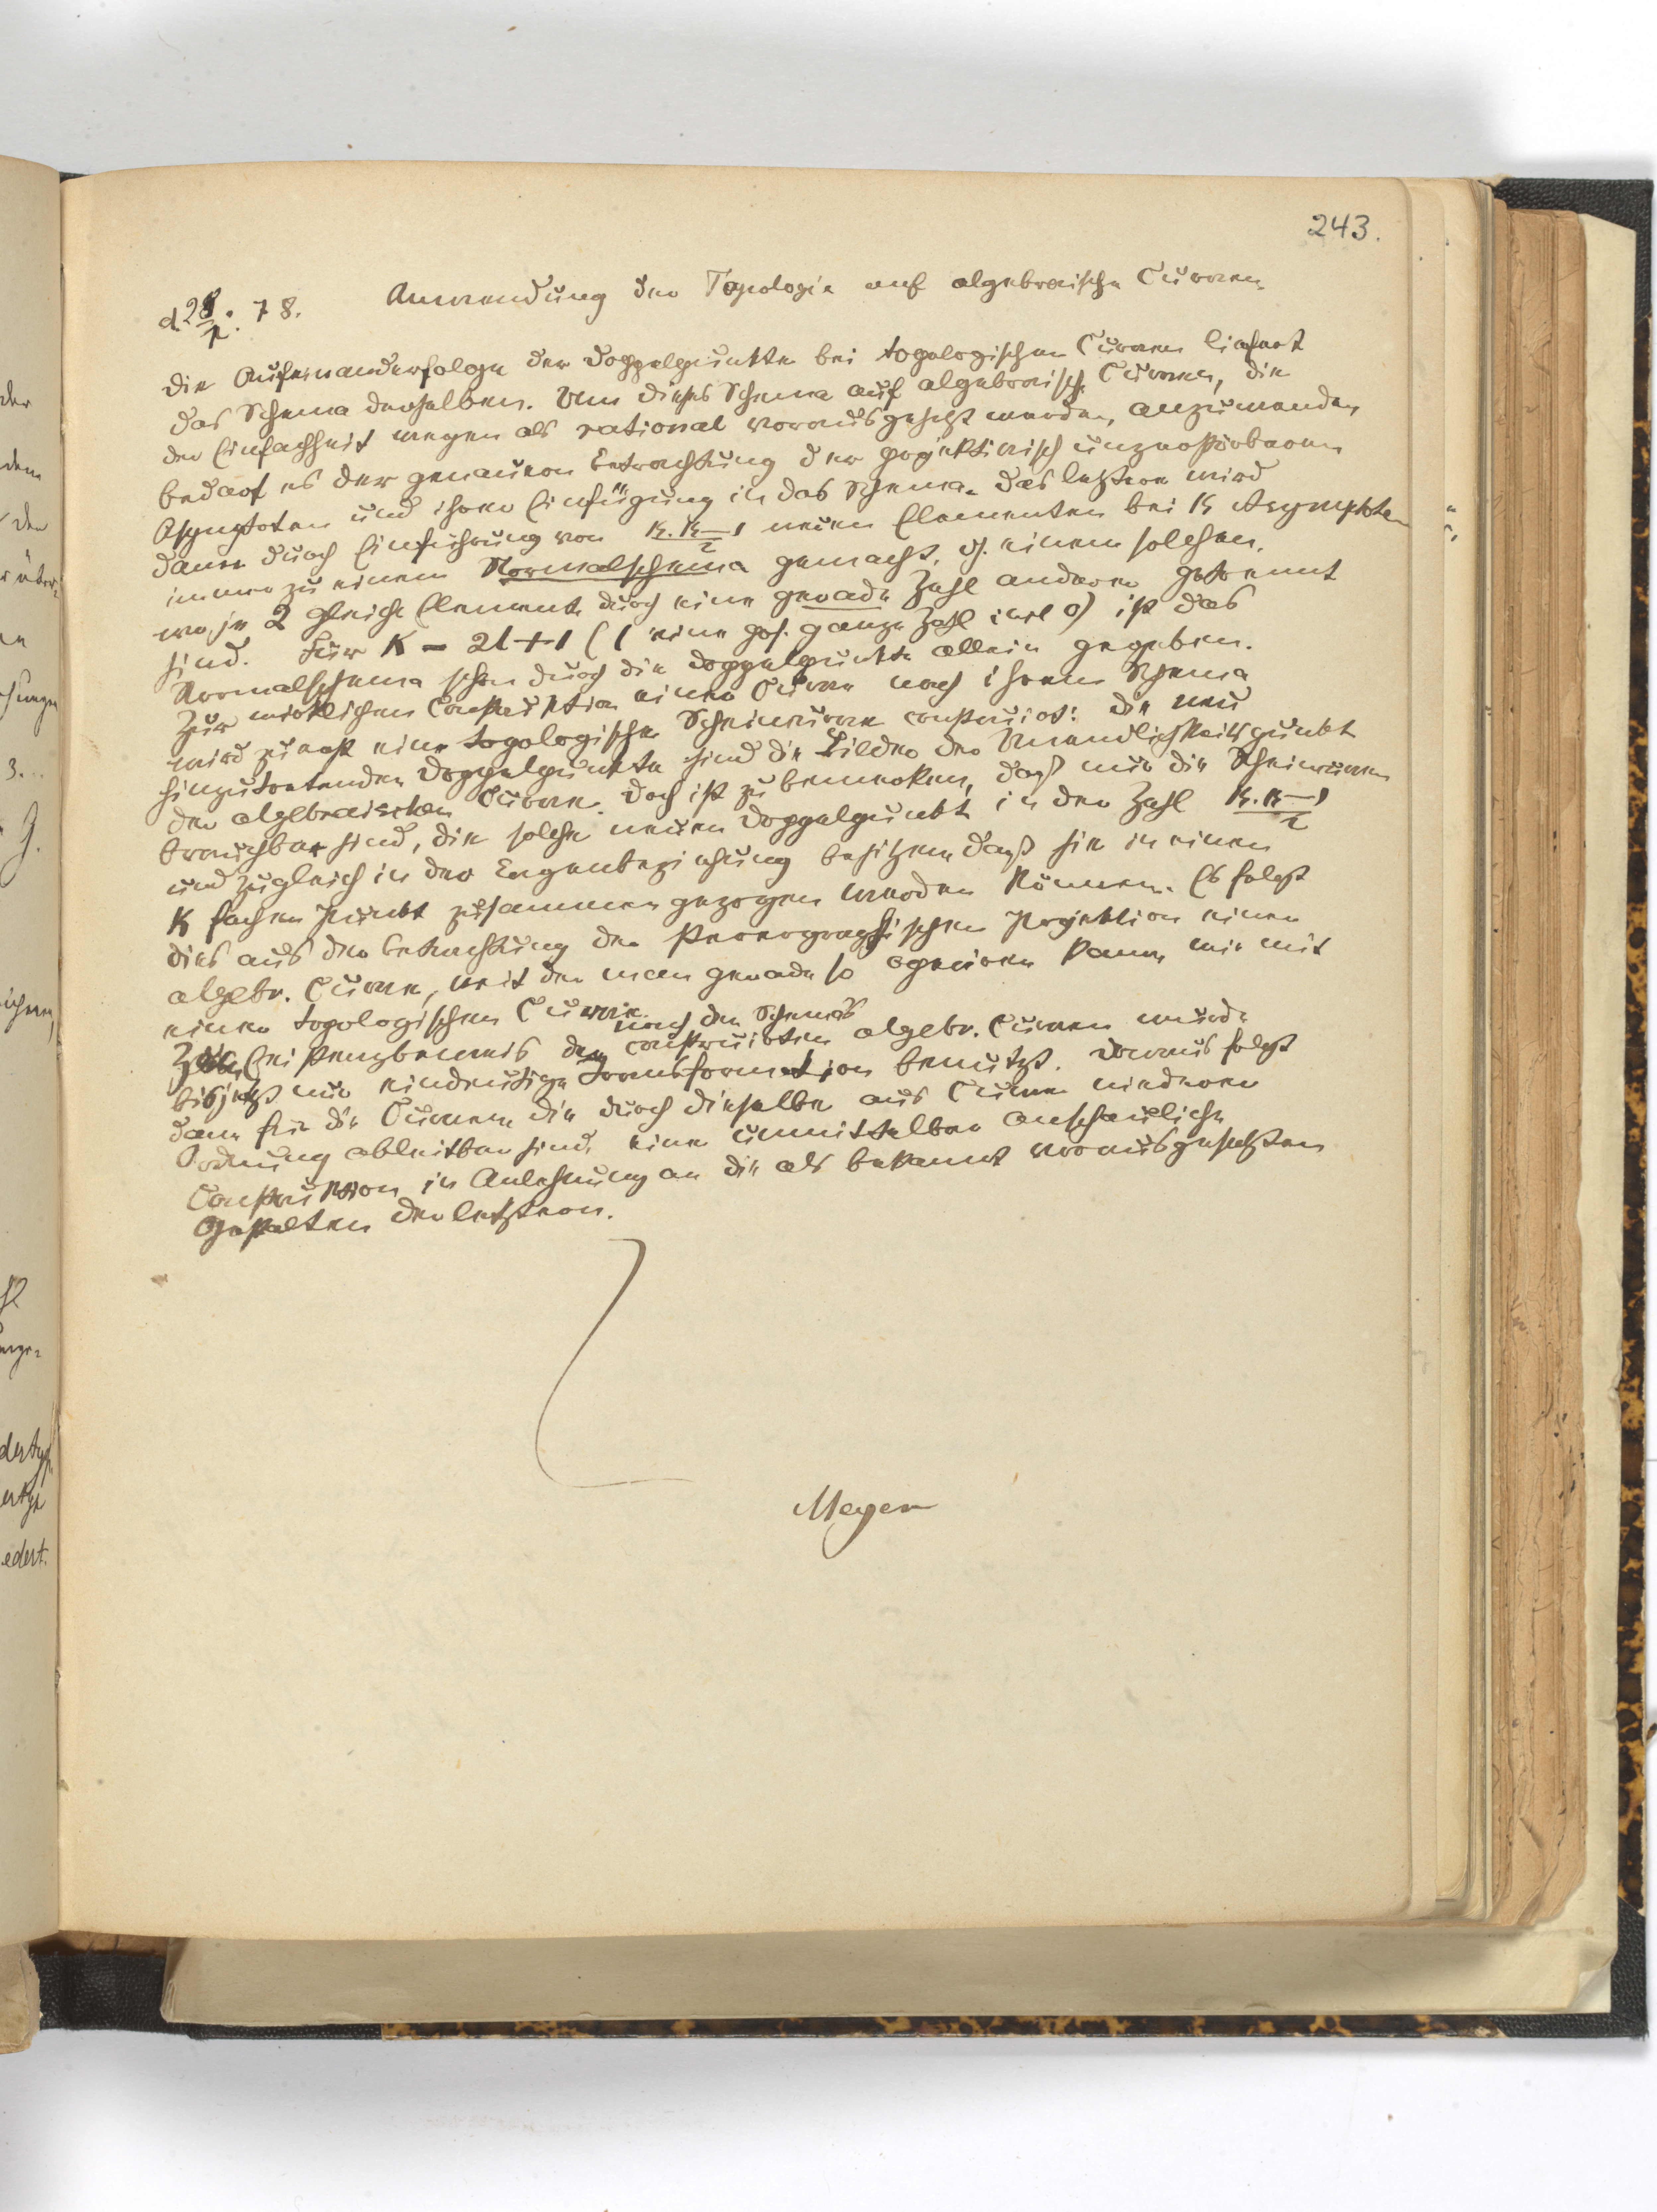 243.
d. 28/2. 78. Anwendung der Topologie auf algebraische Curven.
Die Aufeinanderfolge der Doppelpunkte bei topologischen Curven liefert
das Schema derselben. Um dieses Schema auf algebraische Curven, die
der Einfachheit wegen als rational vorausgesetzt werden, anzuwenden
bedarf es der genauern Betrachtung der projektivisch unzerstörbaren
Asymptoten und ihrer Einfügung in das Schema. Das letztere wird
dann durch Einführung von K.K–1/2 neuen Elementen bei K Asymptoten
immer zu einem Normalschema gemacht, d. einem solchen,
wo je 2 gleiche Elemente durch eine gerade Zahl anderer getrennt
sind. Für K = 2l+1 (l eine pos. ganze Zahl incl 0) ist das
Normalschema schon durch die Doppelpunkte allein gegeben.
Zur wirklichen Construktion einer Curve nach ihrem Schema
wird zuerst eine topologische Scheincurve construirt: die neu
hinzutretenden Doppelpunkte sind die Bilder der Unendlichkeitspunkte
der algebraischen Curve. Doch ist zu bemerken, daß nur die Scheincurven
brauchbar sind, die solche neuen Doppelpunkte in der Zahl K.K–1/2
und zugleich in der Lagenbeziehung besitzen, daß sie in einen
K fachen Punkt zusammengezogen werden können. Es folgt
dies aus der Betrachtung der stereographischen Projektion einer
algebr. Curve, mit der man gerade so operiren kann, wie mit
einer topologischen Curve.
nach den Schemas
Zum Existenzbeweis der construirten algebr. Curven wurde
bisjetzt nur eindeutige Transformation benutzt. Daraus folgt
dann für die Curven die durch dieselbe aus Curven niederer
Ordnung ableitbar sind, eine unmittelbar anschauliche
Construktion in Anlehnung an die als bekannt vorausgesetzten
Gestalten der letztern.
Meyer